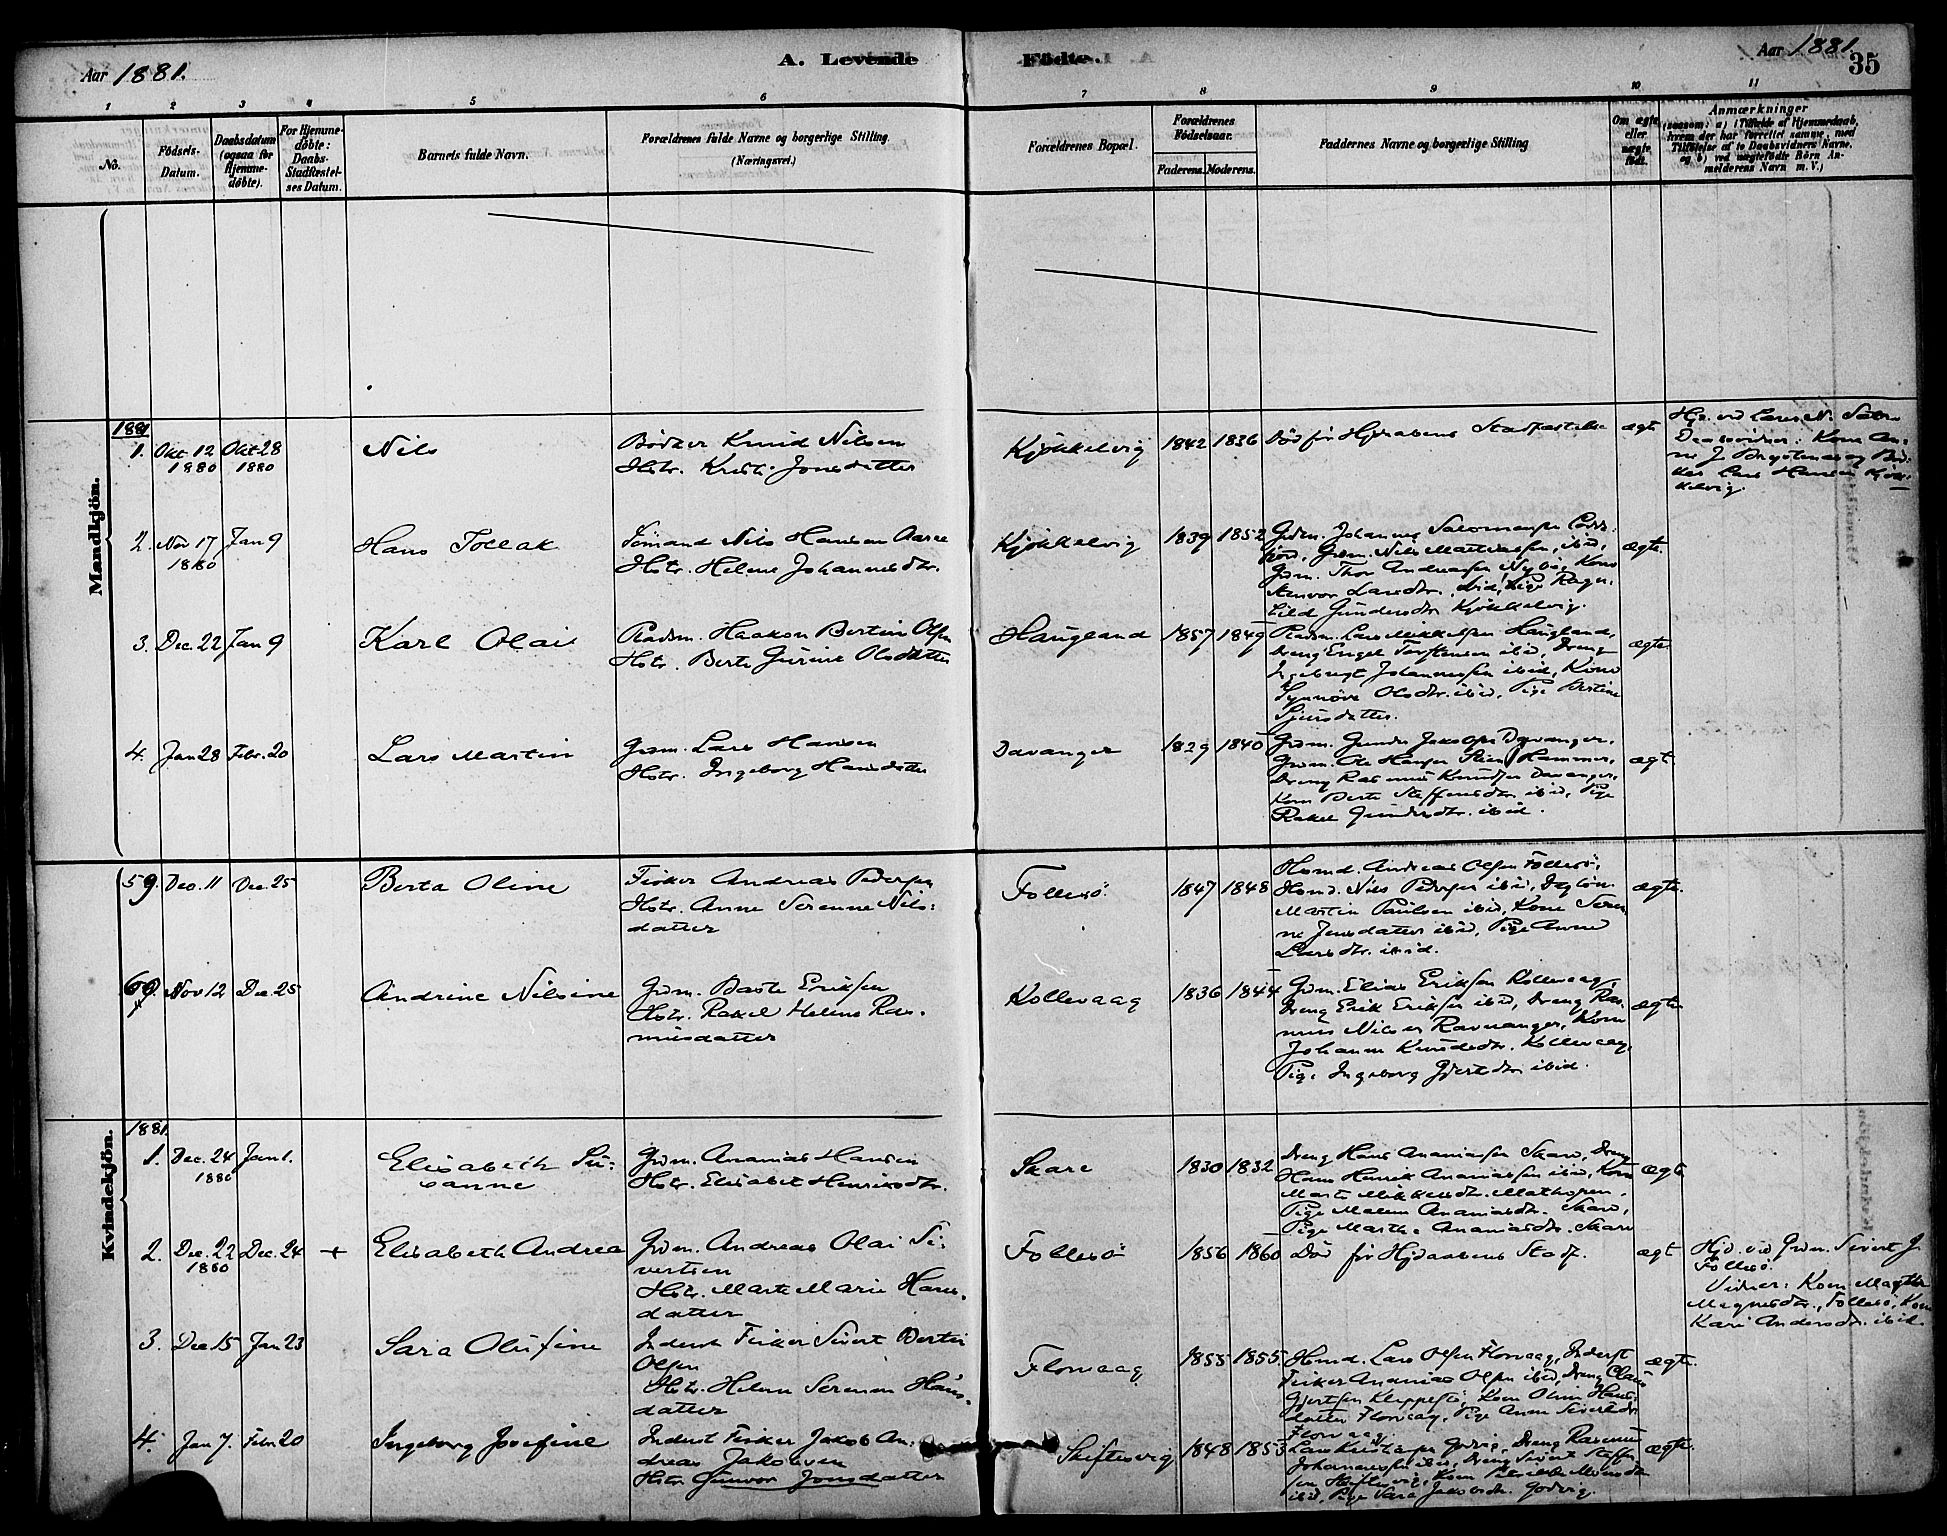 Aar 1881.
A. Levende
Födte.
Aar 1881.
35
1 2 3 4 5 6 7 8 9 10 11
No.
Födsels-
Datum.
Daabsdatum
(ogsaa for
Hjemme-
döbte).
For Hjemme-
döbte:
Daabs-
Stadfæstel-
ses Datum.
Barnets fulde Navn.
Forældrenes fulde Navne og borgerlige Stilling.
(Næringsvei.)
Forældrenes Bopæl.
Forældrenes
Födselsaar.
Faderens. Moderens.
Faddernes Navne og borgerlige Stilling
Om ægte
eller
uægte
födt.
Anmærkninger
(saasom: a) i Tilfælde af Hjemmedaab,
hvem der har forrettet samme, med
Tilföielse af to Daabsvidners Navne,
og b) ved uægtefödte Börn An-
melderens Navn m. V.)
Mandkjön.
1881
1. Okt 12 1880 Okt 28 1880
Nils
Bödker Knud Nilsen
Hstr. Kristi Jonsdatter
Kjökkelvig
1842 1836
Död för Hjdaabens Stadfæstelse
ægte
2. Nov 17 1880 Jan 9
Hans Tollak
Sömand Nils Hansen Aarre
Hstr. Helene Johannesdtr.
Kjökkelvig
1839 1852
Grdm. Johannes
Grdm. Nils Martinussen, ibid,
Grdm. Thor Andreassen Nybö, Kone
Larsdtr. ibid, Pige Ragn-
hild Gundersdtr Kjökkelvig.
ægte.
3. Dec. 22 Jan 9
Karl Olai
Pladsm. Haakon Bertin Olsen
Hstr. Berte Gurine Olsdatter
Haugland
1857 1849
Pladsm. Lars Mikkelsen Haugland,
Dreng Engel Torstensen ibid, Dreng
Ingebrigt Johannessen ibid, Kone
Synnöve Olsdtr. ibid, Pige Bertine
Sjursdatter.
ægte
4. Jan 28 Febr. 20
Lars Martin
Grdm. Lars Hansen
Hstr. Ingeborg Hansdatter
Davanger
1829 1840
Grdm. Gunder Jakobsen Davanger,
Grdm. Ole Hansen Hammer,
Dreng Rasmus Knudsen Davanger,
Kone Berte Steffensdtr. ibid, Pige
Rakel Gundersdtr. ibid.
ægte
59. Dec. 11 Dec. 25
Berta Oline
Fisker Andreas Pedersen
Hstr. Anne Serenne Nils-
datter
Follesö
1847 1848
Husmd. Andreas Olsen Follesö,
Husmd. Nils Pedersen ibid,
Martin Paulsen ibid, Kone Seren-
ne Jensdatter ibid, Pige Anne
Larsdtr. ibid.
ægte.
60. Nov 12 Dec. 25
Andrine Nilsine
Grdm. Baste Eriksen
Hstr. Rakel Helene Ras-
musdatter
Kollevaag
1836 1844
Grdm. Elias Eriksen Kollevaag,
Dreng Erik Eriksen ibid, Dreng Ras-
mus Nilsen Ravnanger, Kone
Johanne Knudsdtr. Kollevaag,
Pige Ingeborg Gjertsdtr ibid.
ægte
Kvindekjön.
1881.
1. Dec. 24 1880 Jan 1.
Elisabeth Su-
sanne
Grdm. Ananias Hansen
Hstr. Elisabet Henriksdtr.
Skare
1830 1832
Dreng Hans Ananiassen Skare, Dreng
Hans Henrik Ananiassen ibid, Kone
Marte Mikkelsdtr. Mathopen,
Pige Malene Ananiasdtr. Skare,
Pige Marthe Ananiasdtr. Skare
ægte
2. Dec. 22 1880 Dec. 24 +
Elisabeth Andrea
Grdm. Andreas Olai Si-
vertsen
Hstr. Marte Marie Hans-
datter
Follesö
1856 1860
Död för Hjdaabens Stadf.
ægte
Hjd. ved Grdm. Sivert J.
Follesö.
Vidner: Kone Magtele
Magnesdtr., Follesö, Kone
Kari Andersdtr. ibid.
3. Dec 15 Jan 23
Sara Olufine
Inderst Fisker Sivert Bertin
Olsen
Hstr. Helene Serenne Hans-
datter
Florvaag
1855 1855.
Husmd. Lars Olsen Florvaag, Inderst
Fisker Ananias Olsen ibid, Dreng Claus
Gjertsen Kleppestö, Kone Oline Hans-
datter Florvaag, Pige Anne Sivertsdtr
Florvaag
ægte
4. Jan 7. Febr. 20
Ingeborg Josefine
Inderst Fisker Jakob An-
dreas Jakobsen
Hstr Gunvor Jonsdatter
Skiftesvig
1848 1853
Lars Kristensen Godvig, Dreng Rasmus
Johannessen ibid, Dreng Sivert Steffen-
sen Skiftesvig, Kone
ibid, Pige Sara Jakobsdtr. Godvig.
ægte.